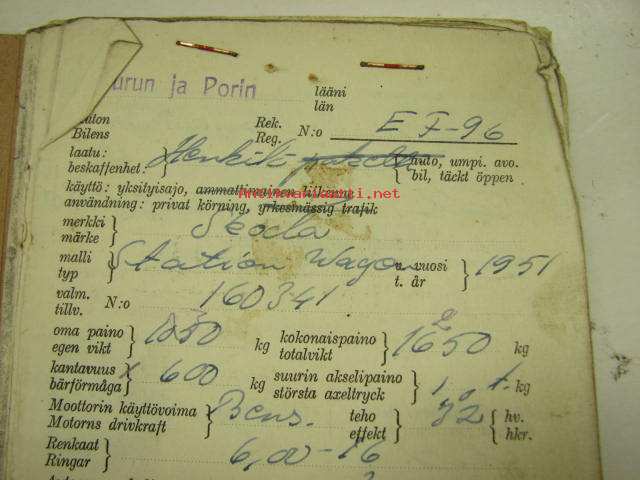 urun ja Porin lääni
län
Bilens Rek. Reg. N:o E F-96
laatu: beskaffenhet: Henkilö auto, umpi. avo. bil, täckt öppen
käyttö: yksityisajo, ammattimainen liikenne
användning: privat körning, yrkesmässig trafik
merkki märke Skoda
malli typ Station Wagon v. vuosi t. år 1951
valm. tillv. N:o 160341
oma paino egen vikt 1050 kg kokonaispaino totalvikt 1650 kg
kantavuus bärförmåga 600 kg suurin akselipaino största axeltryck kg
Moottorin käyttövoima Motorns drivkraft Bens. teho effekt 32 hv. hkr.
Renkaat Ringar 6,00-16
Antiikkitavarat.net